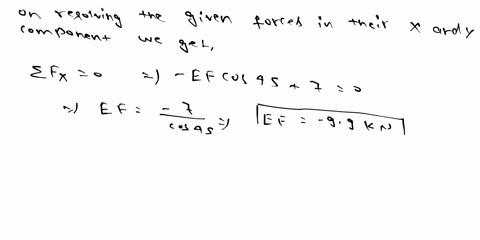 on resolving the given forces in their x and y
component we get,
ΣFx = 0 => - EF cos 45 + 7 = 0
=> EF = -7/cos 45 => EF = -9.9 KN